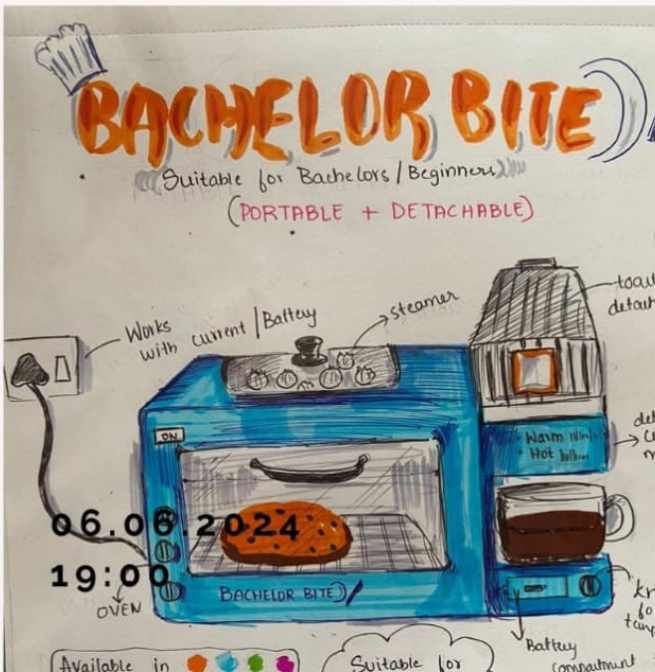 BACHELOR BITE
Suitable for Bachelors / Beginners
(PORTABLE + DETACHABLE)
Works
with current / Battery
steamer
ON
Warm
Hot
06.06.2024
19:00
OVEN
BACHELOR BITE
Battery
compartment
Available in
Suitable for